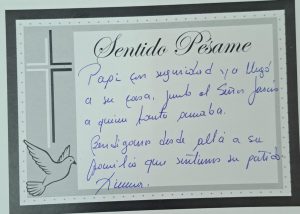 Sentido Pésame
Papi con seguridad ya llegó
a su casa, junto al Señor Jesús
a quien tanto amaba.
Bendíganos desde allá a su
familia que sentimos su partida.